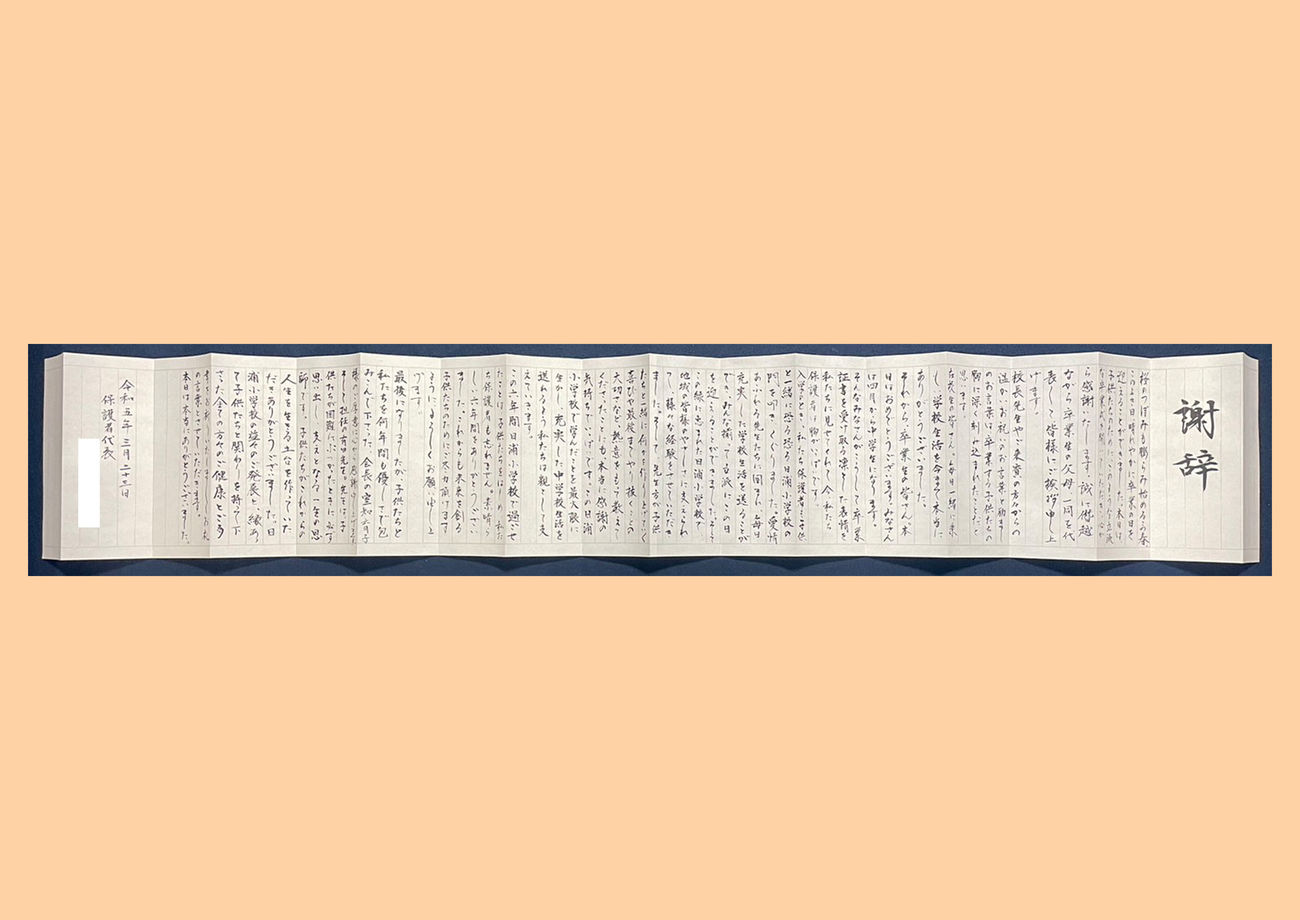 謝辞
桜のつぼみも膨らみ始めるこの春
の良き日晴れやかに卒業の日を
迎えることができました本日は、
子供たちのために、このような立派
な卒業式を
ら感謝いたします。誠に僭越
ながら卒業生の父母一同を代
表しして皆様にご挨拶申し上
げます
校長先生やご来賓の方々からの
温かいお祝いのお言葉と励まし
のお言葉は卒業する子供たちの
胸に深く刻み込まれたことと
思います。
在校生の皆さん、毎日一緒に楽
しい学校生活を今まで本当に
ありがとうございました。
それから、卒業生の皆さん本
日はおめでとうございます。みなさん
は四月から中学生になります。
そんなみなさんがこうして卒業
証書を受け取る凛とした表情を
私たちに見せてくれて今私たち
保護者は胸がいっぱいです。
入学のとき、私たち保護者は子供
と一緒に恐る恐る日浦小学校の
門を叩き、くぐりました。愛情
あふれる先生たちに囲まれ、毎日
充実した学校生活を送ることが
でき、みんな揃って立派にこの日
を迎えることができます。そして
この緑に恵まれた日浦小学校で
地域の皆様のやさしさに支えられ
て、様々な経験をさせていただき
ました。そして、先生方が子供
たちと一緒に何かを作り上げていく
喜びや最後までやり抜くことの
大切さなどを、熱意をもって教えて
くださったことにも、本当に感謝の
気持ちでいっぱいです。この日浦
小学校で学んだことを最大限に
生かし、充実した中学校生活を
送れるよう私たちは親として支
えていきます。
この六年間日浦小学校で過ごせ
たことは、子供たちをはじめ、私た
ち保護者も忘れません。素晴ら
しい六年間をありがとうござい
ました。これからも未来を創る
子供たちのためにご尽力頂けます
ようによろしくお願い申し上
げます。
最後になりましたが、子供たちと
私たちを何年間も優しさで包
みこんで下さった、会長の
様のご厚意に心から感謝申し上げます
そして担任の有田先生。先生は、子
供たちが困難にぶつかったときに、必ず
思い出し、支えとなる一生の恩
師です。子供たちがこれからの
人生を生きる土台を作っていた
だきありがとうございました。日
浦小学校の益々のご発展と、縁あっ
て子供たちと関わりを持って下
さった全ての方々のご健康とご多
幸をお祈りいたしまして、お礼
の言葉とさせていただきます。
本日は本当にありがとうございました。
令和五年三月二十三日
保護者代表